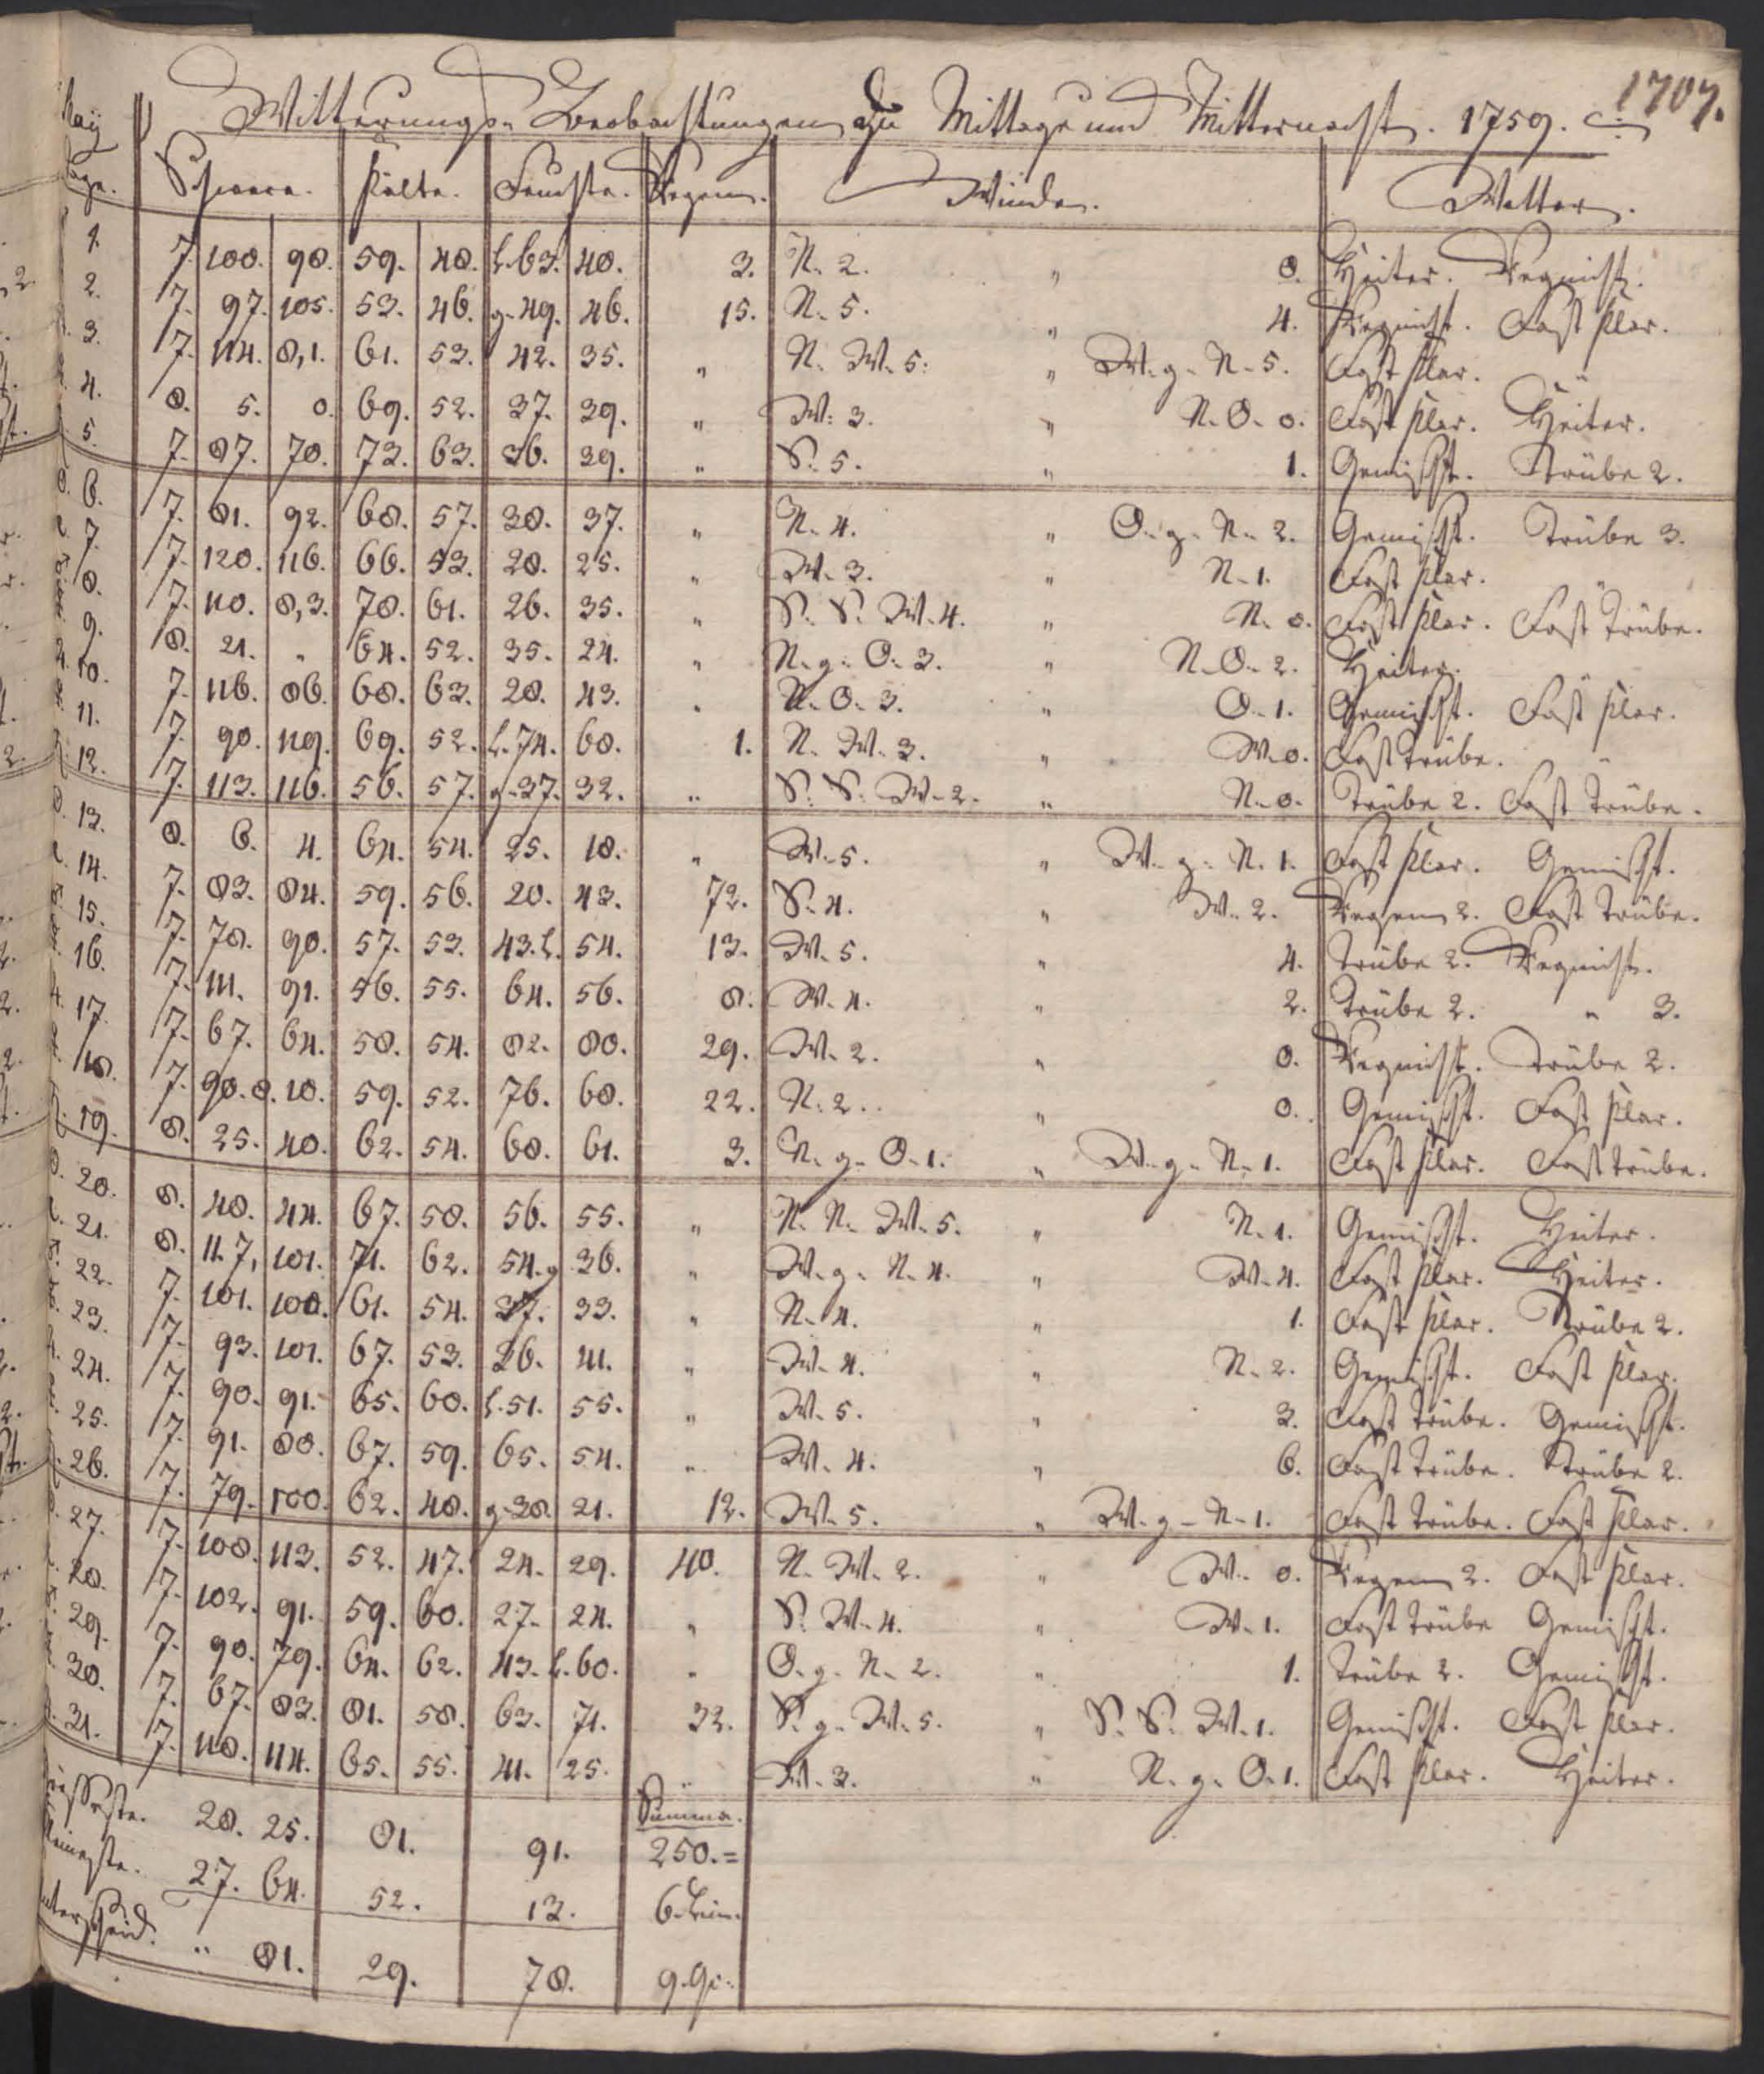 1707.
Witterungs- Beobachtungen zu Mittage und Mitternacht. 1759.
May
Tage. Schwere. Kälte. Feuchte. Regen. Winde. Wetter.
1. 7. 108. 98. 59. 48. l. 63. 48. 3. N. 2. " 0. Heiter. Regnicht.
2. 7. 97. 105. 53. 46. g. 49. 46. 15. N. 5. " 4. Regnicht. Fast klar.
3. 7. 114. 8,1. 61. 53. 42. 35. " N. W. 5. " W. g. N. 5. Fast klar. "
4. 8. 5. 0. 69. 52. 37. 39. " W. 3. " N. O. 0. Fast klar. Heiter.
5. 7. 87. 78. 73. 63. 36. 39. " S. 5. " 1. Gemischt. Trübe 2.
6. 7. 81. 92. 68. 57. 38. 37. " N. 4. " O. g. N. 2. Gemischt. Trübe 3.
7. 7. 120. 116. 66. 53. 28. 25. " W. 3. " N. 1. Fast klar.
8. 7. 118. 8,3. 78. 61. 26. 35. " S. S. W. 4. " N. 0. Fast klar. Fast trübe.
9. 8. 21. " 64. 52. 35. 24. " N. g. O. 3. " N. O. 2. Heiter. "
10. 7. 116. 86. 68. 63. 28. 43. " N. O. 3. " O. 1. Gemischt. Fast klar.
11. 7. 90. 119. 69. 52. l. 74. 68. 1. N. W. 3. " W. 0. Fast trübe. "
12. 7. 113. 116. 56. 57. g. 37. 32. " S. S. W. 2. " N. 0. Trübe 2. Fast trübe.
13. 8. 6. 4. 64. 54. 25. 18. " W. 5. " W. g. N. 1. Fast klar. Gemischt.
14. 7. 83. 84. 59. 56. 20. 43. 72. S. 4. " W. 2. Regen 2. Fast trübe.
15. 7. 78. 90. 57. 53. 43. l. 54. 13. W. 5. " 4. Trübe 2. Regnicht.
16. 7. 111. 91. 56. 55. 64. 56. 8. W. 4. " 2. Trübe 2. " 3.
17. 7. 67. 64. 58. 54. 82. 80. 29. W. 2. " 0. Regnicht. Trübe 2.
18. 7. 90. 8. 18. 59. 52. 76. 68. 22. N. 2. " 0. Gemischt. Fast klar.
19. 8. 25. 40. 62. 54. 68. 61. 3. N. g. O. 1. " W. g. N. 1. Fast klar. Fast trübe.
20. 8. 48. 44. 67. 58. 56. 55. " N. N. W. 5. " N. 1. Gemischt. Heiter.
21. 8. 11. 7, 101. 71. 62. 54. g. 36. " W. g. N. 4. " W. 4. Fast klar. Heiter.
22. 7. 101. 108. 61. 54. 37. 33. " N. 4. " 1. Fast klar. Trübe 2.
23. 7. 93. 101. 67. 53. 26. 41. " W. 4. " N. 2. Gemischt. Fast klar.
24. 7. 90. 91. 65. 60. l. 51. 55. " W. 5. " 3. Fast trübe. Gemischt.
25. 7. 91. 88. 67. 59. 65. 54. " W. 4. " 6. Fast trübe. Trübe 2.
26. 7. 79. 100. 62. 48. g. 38. 21. 12. W. 5. " W. g. N. 1. Fast trübe. Fast klar.
27. 7. 108. 113. 52. 47. 24. 29. 40. N. W. 2. " W. 0. Regen 2. Fast klar.
28. 7. 102. 91. 59. 60. 27. 24. " S. W. 4. " W. 1. Fast trübe Gemischt.
29. 7. 90. 79. 64. 62. 43. l. 60. " O. g. N. 2. " 1. Trübe 2. Gemischt.
30. 7. 67. 83. 81. 58. 63. 71. 32. S. g. W. 5. " S. S. W. 1. Gemischt. Fast klar.
31. 7. 118. 114. 65. 55. 41. 25. " W. 3. " N. g. O. 1. Fast klar. Heiter.
Summa.
28. 25. 81. 91. 250.=
27. 64. 52. 13. 6.
" 81. 29. 78. 9. Gr.